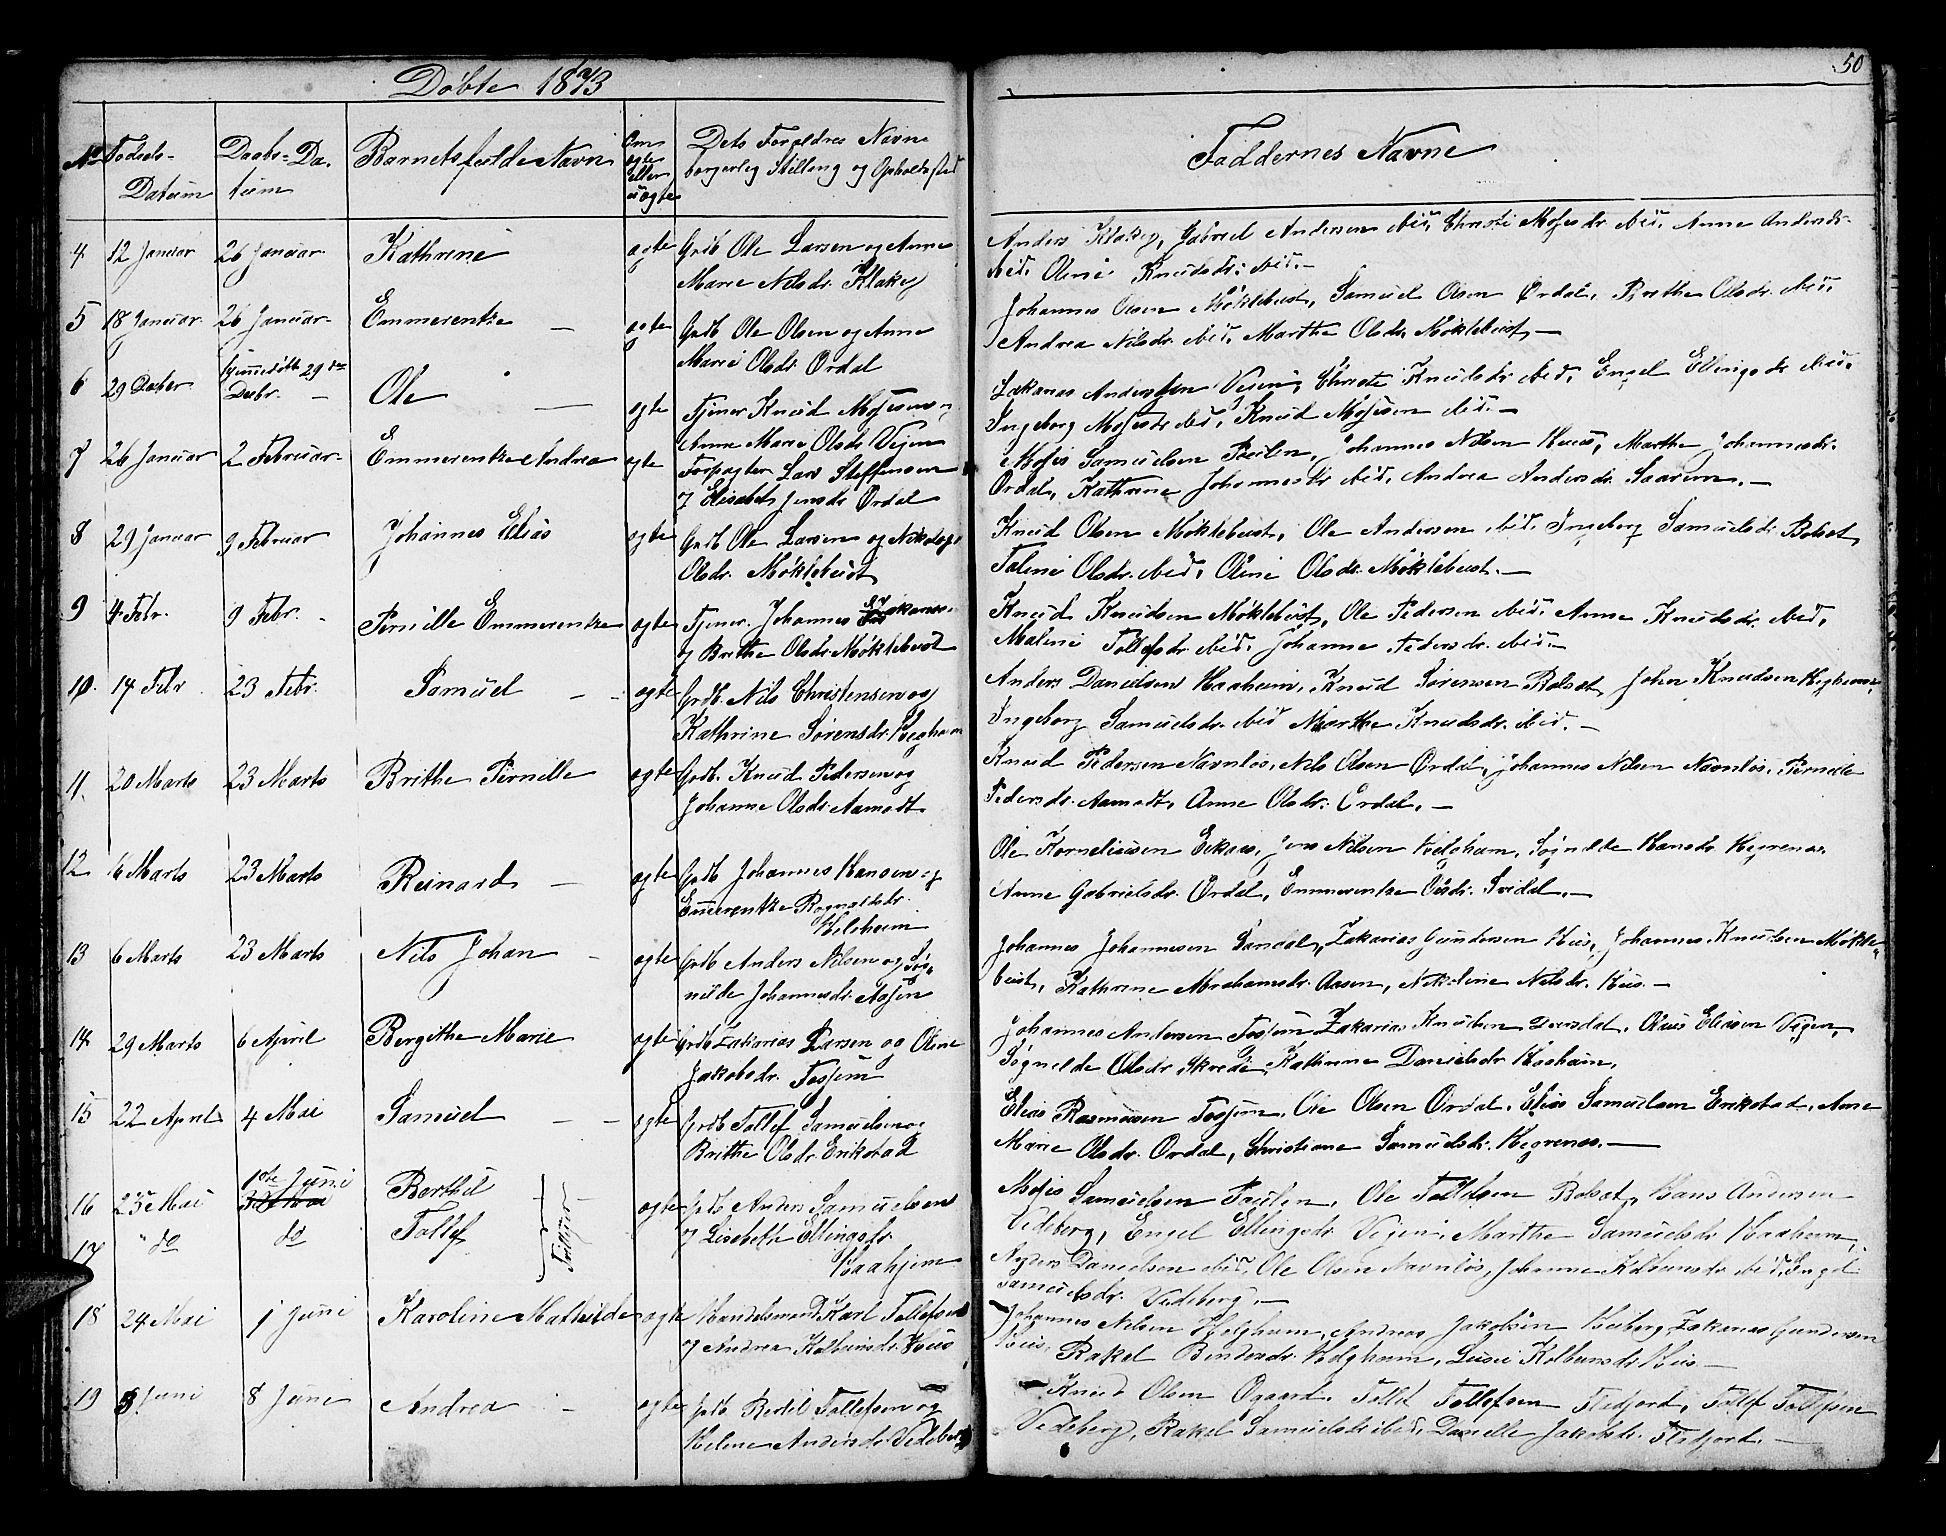 Døbte 1873
50
No Fødsels-Datum
Daabs-Datum
Barnets fulde Navn
Om ægte eller uægte
Dets Forældres Navne borgerlig Stilling og Opholdssted
Faddernes Navne
4 12 Januar 26 Januar Kathrine ægte Grdb Ole Larsen og Anne
Marie Nilsdr. Klakeg
Anders Klakeg, Gabriel Andersen ibid, Christi Mosesdr ibid. Anne Andersdr.
ibid. Oline Knudsdr. ibid.-
5 18 Januar 26 Januar Emmerentze - ægte Grdb Ole Olsen og Anne
Marie Olsdr Ordal
Johannes Olsen Møklebust, Samuel Olsen Ordal, Brithe Olsdr. ibid.
Andrea Nilsdr. ibid. Marthe Olsdr. Møklebust,-
6 29 Decbr Hjemmedøbt 29de Decbr. - Ole - ægte Tjener Knud Mosesen og
Anne Marie Olsdr Vigen
Zakarias Andersen Vigen, Christi Knudsdr ibid, Engel Ellingsdr ibid.
Ingeborg Mosesdr ibid, Knud Mosesen ibid.-
7 26 Januar 2 Februar Emmerentze Andrea ægte Forpagter Lars Steffensen
og Elisabet Jensdr Ordal
Moses Samuelsen Paulen, Johannes Nilsen Huus, Marthe Johannesdr.
Ordal, Kathrine Johannesdr ibid, Andrea Andersdr. Saarem.-
8 29 Januar 9 Februar Johannes Elias ægte Grdb Ole Larsen og Nikol
Olsdr. Møklebust
Knud Olsen Møklebust, Ole Andersen ibid. Ingeborg Samuelsdr. Bolsæt,
Taline Olsdr. ibid, Oline Olsdr. Møklebust.-
9 4 Febr. 9 Febr. Pernille Emmerentze ægte Tjener. Johannes Zakarias.
og Brithe Olsdr Møklebust
Knud Knudsen Møklebust, Ole Pedersen ibid. Anne Knudsdr. ibid,
Maline Tollefsdr. ibid. Johanne Pedersdr. ibid.-
10. 14 Febr 23 Febr. Samuel - - ægte Grdb. Nils Christensen og
Kathrine Sørensdr. Heghem
Anders Danielsen Haaheim, Knud Sørensen Bolsæt, John Knudsen
Ingeborg Samuelsdr. ibid Marthe Knudsdr. ibid.-
11. 20 Marts 23 Marts Brithe Pernille ægte Grdb. Knud Pedersen og
Johanne Olsdr. Aamodt
Knud Pedersen Navnløs, Nils Olsen Ordal, Johannes Nilsen Navnløs, Pernille
Pedersdr. Aamodt, Anne Olsdr. Ordal.-
12 6 Marts 23 Marts Reinard - ægte Grdb Johannes Hansen og
Emmerentze Rognaldsdr.
Ole Korneliusen Eikaas, Jens Nilsen Helgheim, Søgnilde Hansdr. Hegrenæs.
Anne Gabrielsdr. Ordal, Emmerentze Olsdr. -
13 6 Marts 23 Marts Nils Johan - ægte Grdb Anders Nilsen og Søg-
nilde Johannesdr. Aasen
Johannes Johannesen Sandal, Zakarias Gundersen Huus, Johannes Knudsen Møkle-
bust, Kathrine Abrahamsdr. Aasen, Nikoline Nilsdr. Huus.-
14 29 Marts 6 April Bergithe Marie ægte Grdb Zakarias Larsen og Oline
Jakobsdr. Fosjem
Johannes Andersen Fosjem Zakarias Knudsen Olaus Eliasen Vigen,
Søgnilde Olsdr. Skrede, Kathrine Danielsdr. Haaheim.
15 22 April 4 Mai Samuel - - ægte Grdb Tollef Samuelsen og
Brithe Olsdr. Erikstad
Elias Rasmusen Fosjem, Ole Olsen Ordal, Elias Samuelsen Erikstad, Anne
Marie Olsdr. Ordal, Christiane Samuelsdr. Hegrenæs.-
16 23 Mai 1ste Juni Berthil
17 " do do Tollef
Tvillinger
ægte Grdb Anders Samuelsen
og Lisebeth Ellingsdr.
Haahjem
Moses Samuelsen Paulen, Ole Tollefsen Bolsæt, Hans Andersen
Vedeberg, Engel Ellingsdr. Vigen, Marthe Samuelsdr. Haaheim,
Anders Danielsen ibid, Ole Olsen Navnløs, Johanne ibid, Engel
Samuelsdr. Vedeberg.-
18 24 Mai 1 Juni Karoline Mathilde ægte Handelsmand Karl Tollefsen
og Andrea Kolbeinsdr. Huus
Johannes Nilsen Helgheim, Andreas Jakobsen Zakarias Gundersen
Huus, Rakel Bendixdr. Helgheim, Kolbeinsdr Huus-
19 3 Juni 8 Juni Andrea - ægte Grdb Bertil Tollefsen og
Helene Andersdr. Vedeberg
Knud Olsen Tollef Tollefsen Flafjord, Tollef Tollefsen
Vedeberg, Rakel Samuelsdr ibid. Danielle Jakobsdr. -